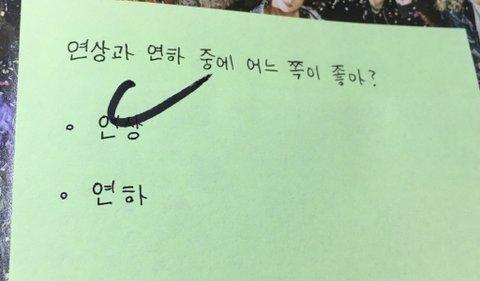 연상과 연하 중에 어느 쪽이 좋아?
연상
연하